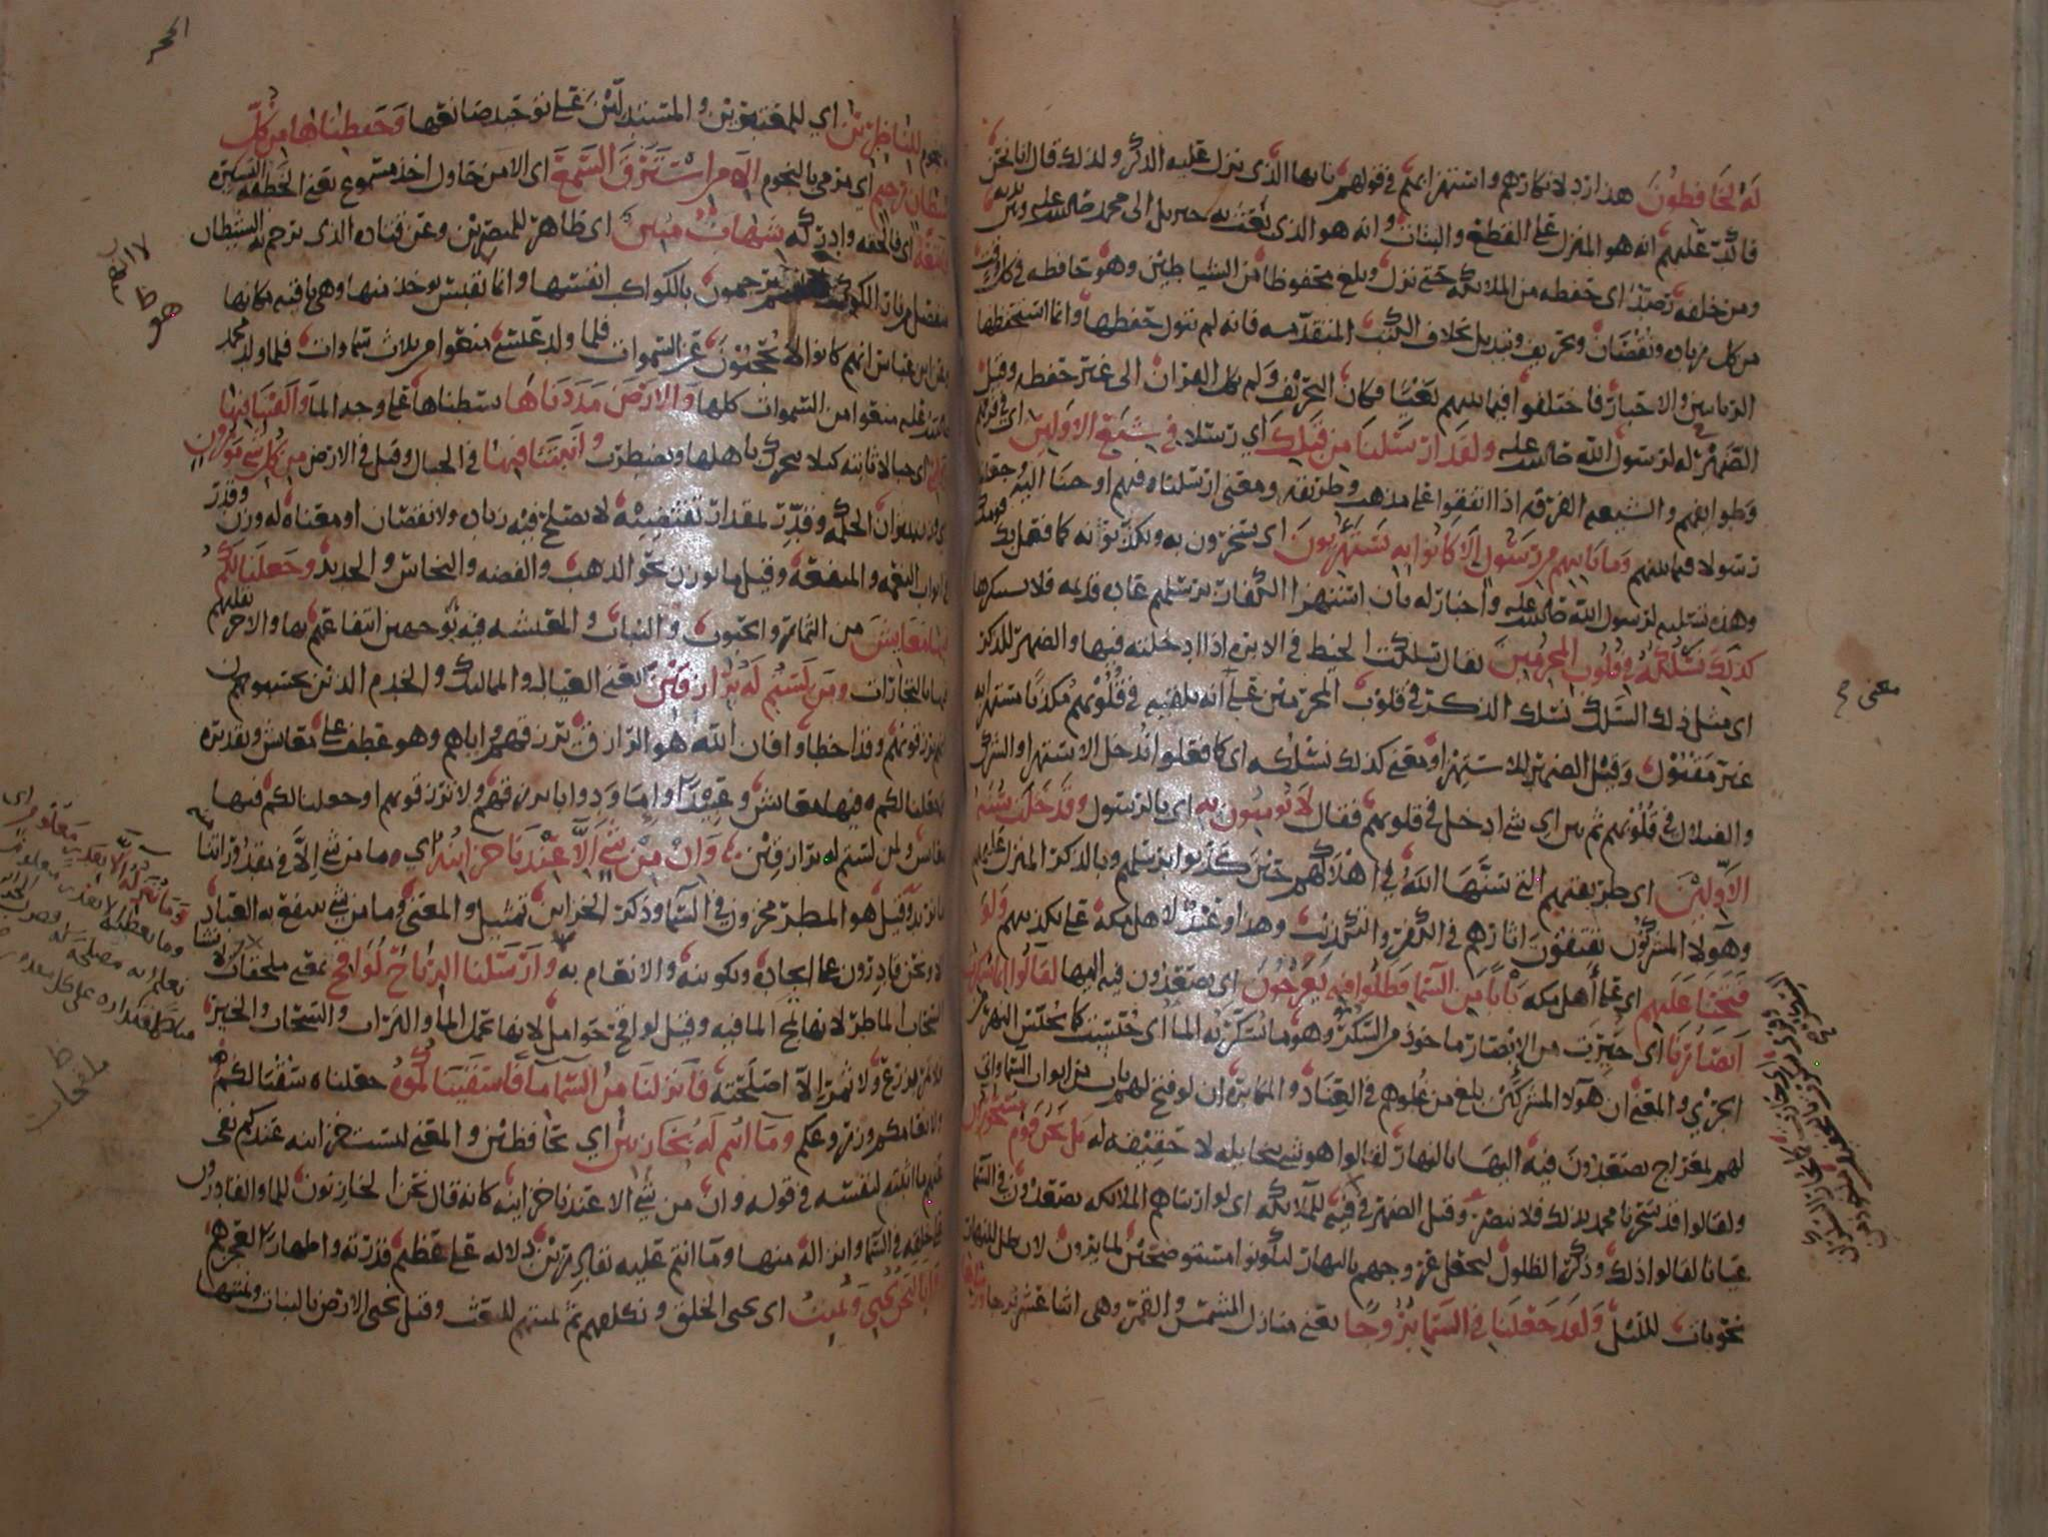 لَهُ لَحَافِظُونَ هذا رد لانكارهم واستهزائهم في قولهم يا ايها الذي نزل عليه الذكر ولذلك قال انا نحن
فاكد عليهم انه هو المنزل على القطع والبتات وانه هو الذي بعث به جبريل الى محمد صلى الله عليه وبين يديه
ومن خلفه رصدا اي حفظه من الملائكة حتى نزل وبلغ محفوظا من الشياطين وهو حافظه في كل وقت
من كل زياده ونقصان وتحريف وتبديل بخلاف الكتب المتقدمه فانه لم يتول حفظها وانما استحفظها
الربانيين والاحبار فاختلفوا فيما بينهم بغيا فكان التحريف ولم يكل القران الى غير حفظه وقيل
الضمير في له لرسول الله صلى الله عليه وَلَقَدْ ارْسَلنَا مِن قَبلِكَ اي رسلا فِي شِيَعِ الاَوَلِينَ اي في فرقهم
وطوائفهم والشيعه الفرقه اذا اتفقوا على مذهب وطريقه ومعنى ارسلناه فيهم اوحينا اليه وجعلناه
رسولا فيما بينهم وَمَا يَاتِيهِم مِن رَسُولٍ اِلاَّ كَانُوا بِهِ يَستَهْزِئُونَ اي يسخرون به ويكذبونه كما فعل بك قومك
وهذه تسليه لرسول الله صلى الله عليه واخبار له بان استهزا الكفار برسلهم عاده قديمه فلا تستنكرها
كَذلِكَ نَسْلُكُهُ فِي قُلُوبِ المُجرِمِينَ يقال سلكت الخيط في الابره اذا ادخلته فيها والضمير للذكر
اي مثل ذلك السلك نسلك الذكر في قلوب المجرمين على انه يلقيه في قلوبهم مكذبا مستهزا به
غير مقبول وقيل الضمير للاستهزا ومعنى كذلك نسلكه اي كما فعلوا ندخل الاستهزا والشرك
والضلال في قلوبهم ثم بين اي شي ادخل في قلوبهم فقال لاَ يُومِنُونَ بِهِ اي بالرسول وَقَدْ خَلَتْ سُنَّةُ
الاَوَّلِيْنَ اي طريقتهم التي سنها الله في اهلاكهم حين كذبوا برسلهم وبالذكر المنزل عليهم
وهولا المشركون يقتفون اثارهم في الكفر والتكذيب وهذا وعيد لاهل مكه على تكذيبهم وَلَوْ
فَتَحْنَا عَلَيهِم اي على اهل مكه بَابًا مِن السَّمَا فَظَلُّوا فِيهِ يَعْرُجُونَ اي يصعدون فيه اليها لَقَالُوا اِنمَا سُكِّرَت
اَبصَارُنَا اي حيرت من الابصار ماخوذ من السكر وهو ما تسكر به الما اي حبست كما يحبس النهر من
الجري والمعنى ان هولا المشركين بلغ من غلوهم في العناد والمكابره ان لو فتح لهم باب من ابواب السما واتي
لهم بمعراج يصعدون فيه اليها بالنهار لقالوا هو شي يتخايله لا حقيقه له بَل نَحنُ قَومٌ مَسْحُورُونَ
ولقالوا قد سحرنا محمد بذلك فلا نبصر وقيل الضمير في فيه للملائكه اي لو اريناهم الملائكه يصعدون في السما
عيانا لقالوا ذلك وذكر الظلول ليجعل عروجهم بالنهار ليكونوا مستوضحين لما يرون لان ظل للنهار
وبات لليل وَلَقَد جَعَلنَا فِي السَّمَا بُرُوجًا يعني منازل الشمس والقمر وهي اثنا عشر برجا
معنى ح
الحجر
لِلنَّاظِرِيْنَ اي للمعتبرين والمستدلين على توحيد صانعها وَحَفِظنَاهَا مِن كُلِّ
شَيْطَانٍ رَجِيمٍ اي مرمي بالنجوم اِلاَّ مَن اسْتَرَقَ السَّمعَ اي الا من حاول اخذ مسموع يعني الخطفه اليسيره
اي فالحقه وادركه شِهَابٌ مُبِينٌ اي ظاهر للمبصرين وعن قتاده الذي ترجم به الشيطان
يرجمون بالكواكب انفسها وانما تقبس يوخذ منها وهي باقيه مكانها
عن ابن عباس انهم كانوا لا يحجبون عن السموات فلما ولد عيسى منعوا من ثلاث سموات فلما ولد محمد
صلى الله عليه منعوا من السموات كلها وَالاَرْضَ مَدَدْنَاهَا بسطناها على وجه الما وَاَلقَينَا فِيهَا
اي جبالا ثابته كيلا يتحرك باهلها ويضطرب وَاَنبَتنَا فِيهَا في الجبال وقيل في الارض مِن كُلِّ شَيٍ مَوزُونٍ
بميزان الحكمه وقدر بمقدار تقتضيه لا يصلح فيه زياده ولا نقصان او معناه له وزن وقدر
في ابواب النعمه والمنفعه وقيل ما يوزن نحو الذهب والفضه والنحاس والحديد وَجَعَلنَا لَكُم
فِيهَا مَعَايِشَ من الثمار والحبوب والنبات والمعيشه فيه توجهين انتفاعهم بها والاخر تقلبهم
فيها بالتجارات وَمَن لَستُم لَهُ بِرَازِقِينَ يعني العيال والمماليك والخدم الذين يحسبون
انهم يرزقونهم وقد اخطاوا فان الله هو الرزاق يرزقهم واياهم وهو عطف على معايش وتقديره
جعلنا لكم فيها معايش وعبيدا واما ودوابا نرزقهم ولا ترزقونهم او جعلنا لكم فيها
معايش ولمن لستم له برازقين وَاِنْ مِنْ شَيٍ اِلاَّ عِنْدَنَا خَزَائِنُهُ اي وما من شي الا في مقدوراتنا منه
ما نريد وقيل هو المطر مخزون في السما وذكر الخزاين تمثيل والمعنى وما من شي ينتفع به العباد
الا ونحن قادرون على ايجاده وتكوينه والانعام به وَاَرْسَلنَا الرِّيَاحَ لَوَاقِحَ يعني ملقحات
السحاب الماطر لانها تلقح الما فيه وقيل لواقح حوامل لانها تحمل الما والتراب والسحاب والخير
ولا ثمر الا اصلحته فَاَنزَلنَا مِنَ السَّمَآ مَآً فَاَسقَينَاكُمُوهُ جعلناه سقيا لكم
ولانعامكم وزروعكم وَمَا اَنتُم لَهُ بِخَازِنِينَ اي بحافظين والمعنى ليست خزائنه عندكم نفى
عنهم ما اثبته لنفسه في قوله وان من شي الا عندنا خزاينه كانه قال نحن الخازنون للما والقادرون
على خلقه في السما وانزاله منها وما انتم عليه بقادرين دلاله على عظيم قدرته واظهارا لعجزهم
وَاِنَّا لَنَحنُ نُحيِي وَنُمِيتُ اي نحيي الخلق ونكلفهم ثم نميتهم للبعث وقيل نحيي الارض بالنبات ونميتها
وَمَا نُنَزِّلُهُ اِلاَّ بِقَدَرٍ مَعلُومٍ اي
وما نعطيه الا بقدر معلوم
نعلم انه مصلحه له